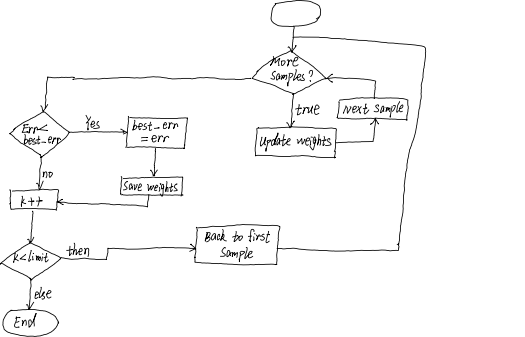 More
samples?
true
Next sample
Update weights
Err<
best_err
Yes
best_err
=err
Save weights
no
k++
k<limit
then
Back to first
Sample
else
End